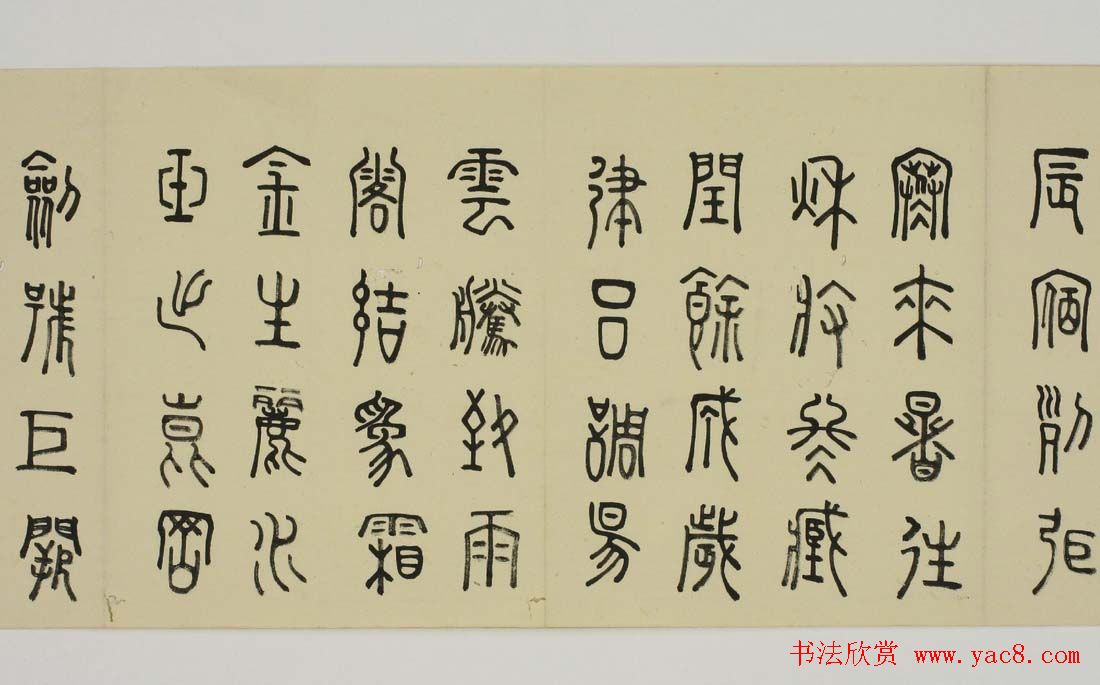 辰宿列張
寒來暑往
秋收冬藏
閏餘成歲
律呂調陽
雲騰致雨
露結為霜
金生麗水
玉出崑岡
劍號巨闕
书法欣赏 www.yac8.com